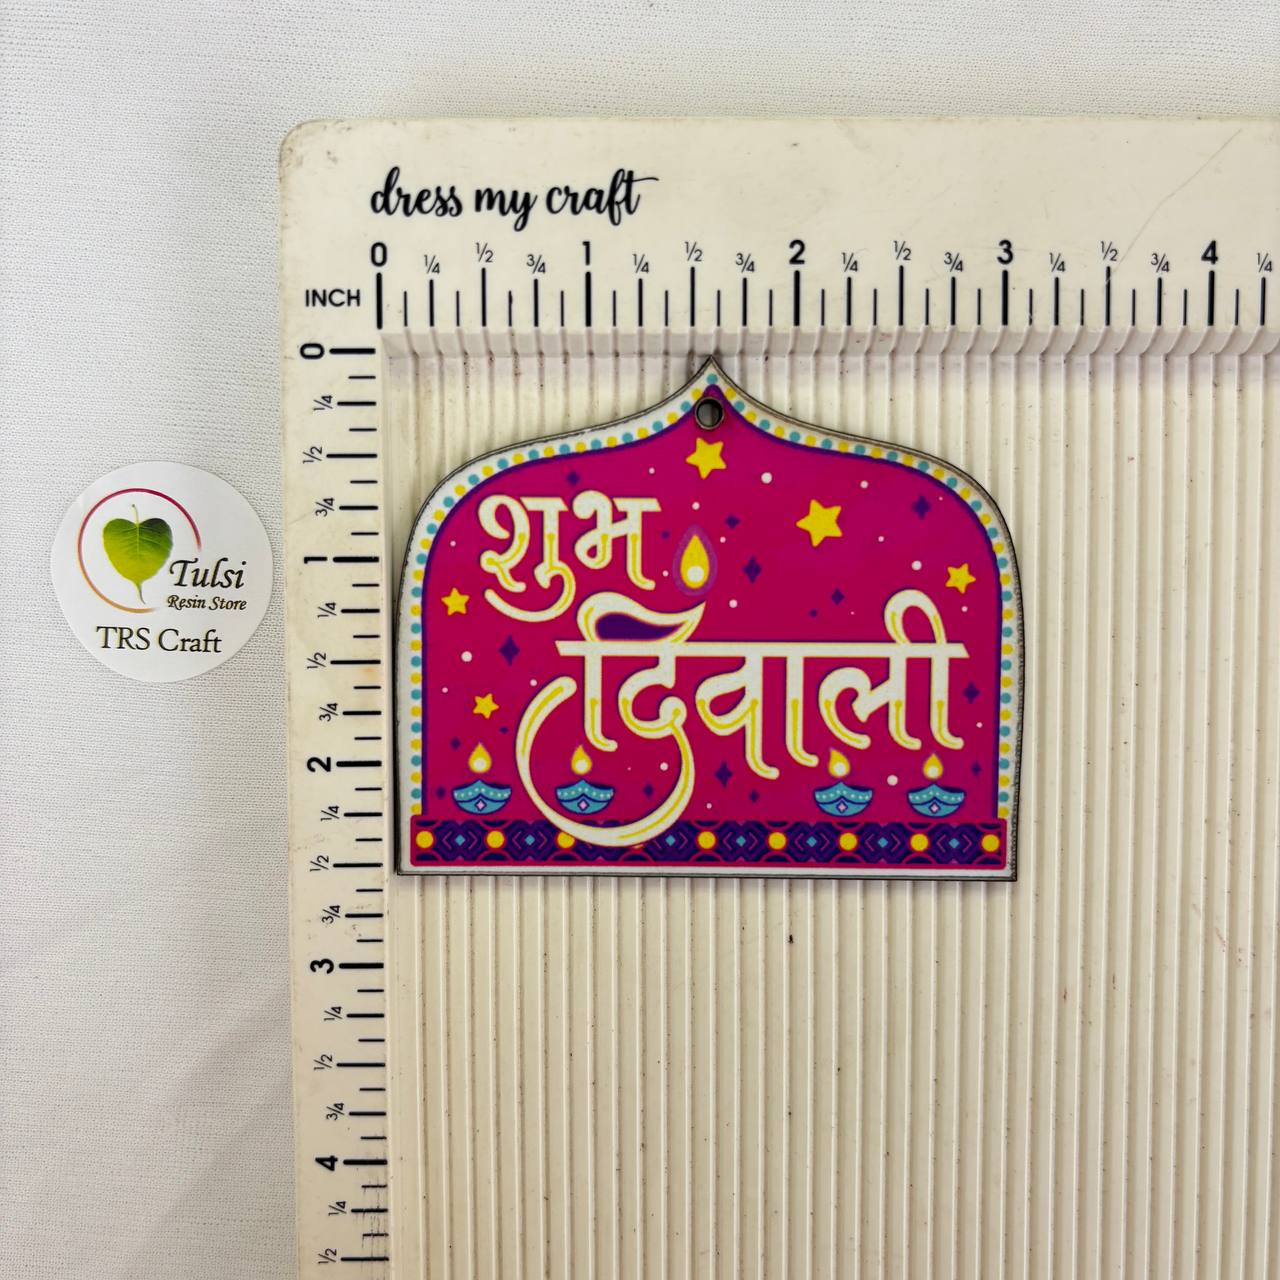 dress my craft
0 ¼ ½ ¾ 1 ¼ ½ ¾ 2 ¼ ½ ¾ 3 ¼ ½ ¾ 4 ¼
INCH
0
¼
½
¾
1
¼
½
¾
2
¼
½
¾
3
¼
½
¾
4
¼
½
Tulsi
Resin Store
TRS Craft
शुभ
दिवाली